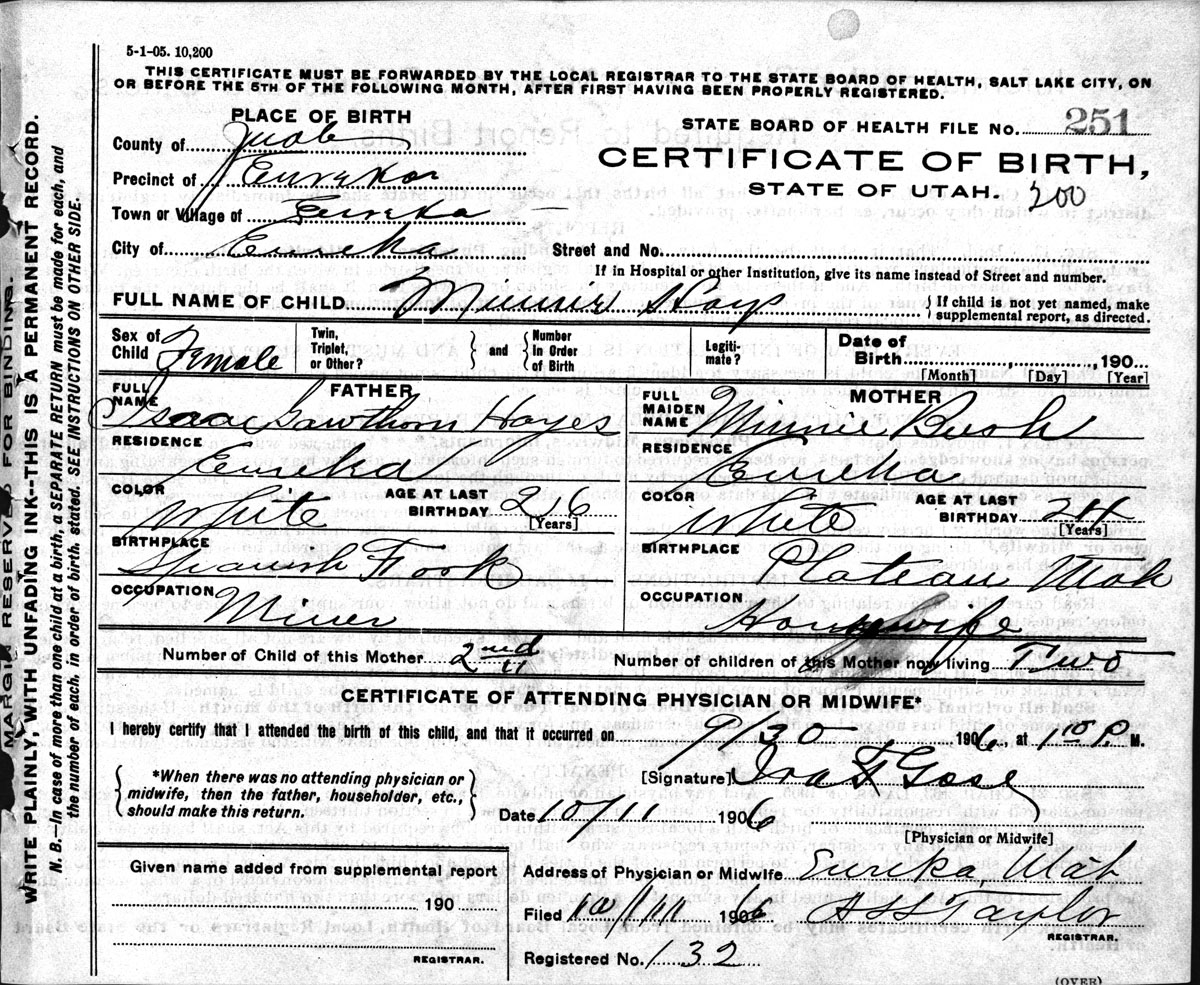 5-1-05. 10,200
THIS CERTIFICATE MUST BE FORWARDED BY THE LOCAL REGISTRAR TO THE STATE BOARD OF HEALTH, SALT LAKE CITY, ON
OR BEFORE THE 5TH OF THE FOLLOWING MONTH, AFTER FIRST HAVING BEEN PROPERLY REGISTERED.
PLACE OF BIRTH
STATE BOARD OF HEALTH FILE NO. 251
County of Juab
CERTIFICATE OF BIRTH,
Precinct of Eureka
STATE OF UTAH. 200
Town or Village of Eureka
City of Eureka Street and No.
If in Hospital or other Institution, give its name instead of Street and number.
FULL NAME OF CHILD Hays
If child is not yet named, make
supplemental report, as directed.
Sex of Child Female
Twin, Triplet, or Other? and Number In Order of Birth
Legiti-mate?
Date of Birth , 190
[Month] [Day] [Year]
FATHER
FULL NAME Isaac Hayes
RESIDENCE
Eureka
COLOR White
AGE AT LAST BIRTHDAY 26
[Years]
BIRTHPLACE
Spanish Fork
OCCUPATION
Miner
MOTHER
FULL MAIDEN NAME Minnie Bush
RESIDENCE
Eureka
COLOR White
AGE AT LAST BIRTHDAY 24
[Years]
BIRTHPLACE
Plateau Utah
OCCUPATION
Housewife
Number of Child of this Mother 2nd Number of children of this Mother now living Two
CERTIFICATE OF ATTENDING PHYSICIAN OR MIDWIFE*
I hereby certify that I attended the birth of this child, and that it occurred on 9/30 1906, at 1 10 P. M.
*When there was no attending physician or
midwife, then the father, householder, etc.,
should make this return.
[Signature] Ira
Date 10/11 1906
[Physician or Midwife]
Given name added from supplemental report
190
REGISTRAR.
Address of Physician or Midwife Eureka, Utah
Filed 10/11 1906 Taylor
REGISTRAR.
Registered No. 132
(OVER)
MARGIN RESERVED FOR BINDING.
WRITE PLAINLY, WITH UNFADING INK--THIS IS A PERMANENT RECORD.
N. B.--In case of more than one child at a birth, a SEPARATE RETURN must be made for each, and
the number of each, in order of birth, stated. SEE INSTRUCTIONS ON OTHER SIDE.